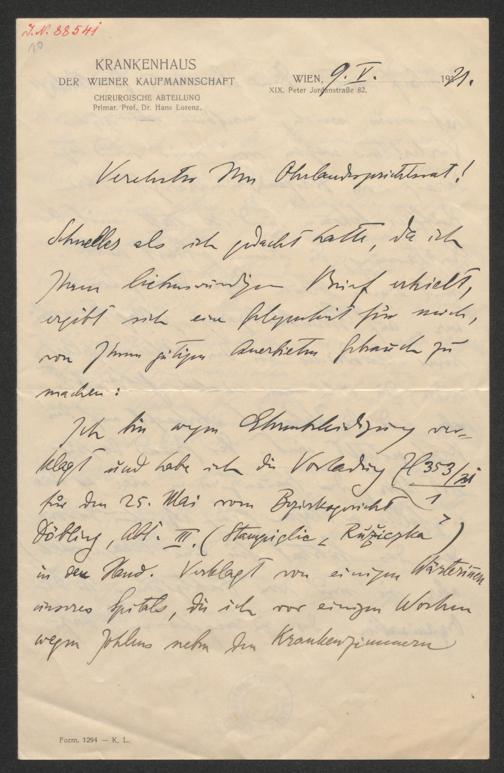 J.N. 88541
10
KRANKENHAUS
DER WIENER KAUFMANNSCHAFT
CHIRURGISCHE ABTEILUNG
Primar. Prof. Dr. Hans Lorenz.
WIEN, 9. V. 1921.
XIX. Peter Jordanstraße 82.
Verehrter Herr Oberlandsgerichtsrat!
Schneller als ich gedacht hatte, da ich
Ihren liebenswürdigen Brief erhielt,
ergibt sich eine Gelegenheit für mich,
von Ihrem gütigen Anerbieten Gebrauch zu
machen:
Ich bin wegen Ehrenbeleidigung ver-
klagt und habe ich die Vorladung 353/21
für den 25. Mai vom Bezirksgericht 1
Döbling, Abt. III. (Stampiglie „Ružiczka")
in der Hand. Verklagt von einigen Wärterinnen
unseres Spitals, die ich vor einigen Wochen
wegen Johlens neben den Krankenzimmern
Form. 1294 — K. L.